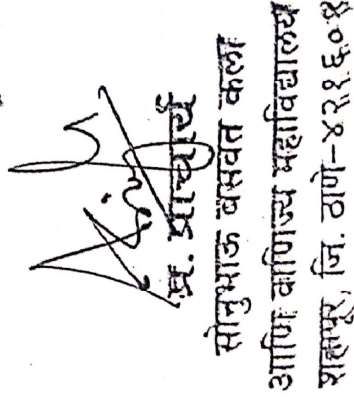 प्र. प्राचार्य
सोनुभाऊ बसवंत कला
आणि वाणिज्य महाविद्यालय
शहापूर जि. ठाणे-४२१६०१